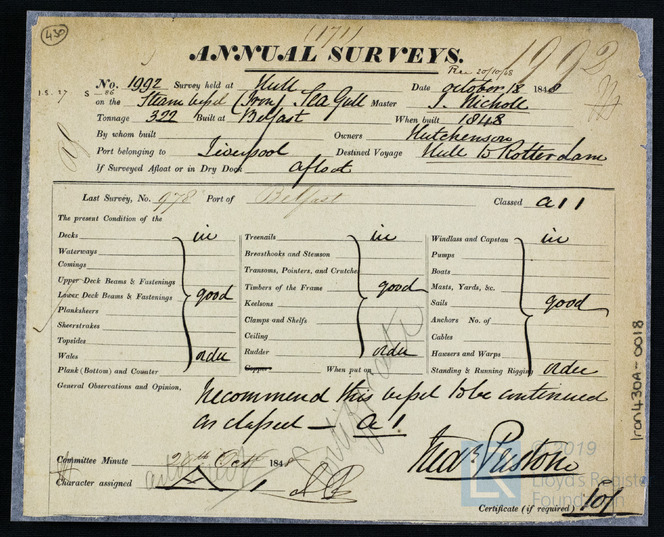 430
(171)
ANNUAL SURVEYS.
1992
Rec 20/10/48
No. 1992 Survey held at Hull Date October 18 1848
on the Steam vessel (Iron) Sea Gull Master J. Nicholl
Tonnage 322 Built at Belfast When built 1848
By whom built Owners Hutchenson
Port belonging to Liverpool Destined Voyage Hull to Rotterdam
If Surveyed Afloat or in Dry Dock afloat
Last Survey, No. 978 Port of Belfast Classed A 1 1
The present Condition of the
Decks in Treenails in Windlass and Capstan in
Waterways Breasthooks and Stemson Pumps
Comings Transoms, Pointers, and Crutches Boats
Upper Deck Beams & Fastenings Timbers of the Frame good Masts, Yards, &c.
Lower Deck Beams & Fastenings good Keelsons Sails good
Planksheers Clamps and Shelfs Anchors No. of
Sheerstrakes Ceiling Cables
Topsides Rudder order Hawsers and Warps
Wales order Copper When put on Standing & Running Rigging order
Plank (Bottom) and Counter
General Observations and Opinion, recommend this vessel to be continued
as classed – A 1.
Committee Minute Octr 184
Character assigned
© 2019
Lloyd's Register
Foundation
Certificate (if required) 10/
Iron430A-0018